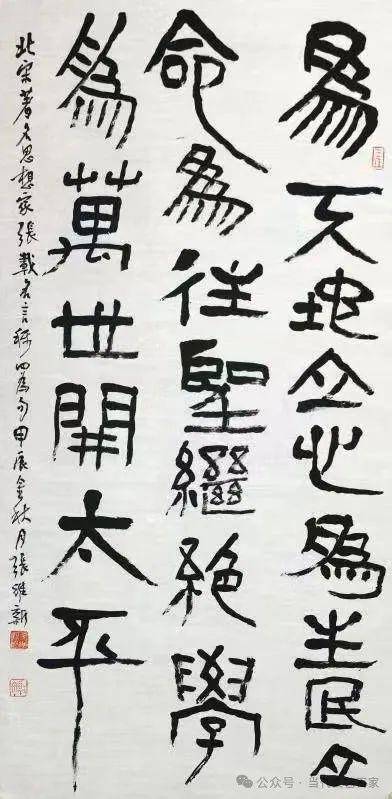 為天地立心為生民立
命為往聖繼絕學
為萬世開太平
北宋著名思想家張載名言稱四為句甲辰金秋月張維新
公众号·当
家